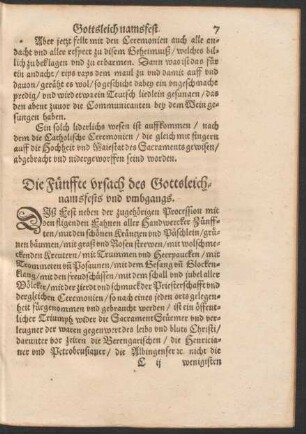 Gottsleichnamsfest 7
Aber jetzt fellt mit den Ceremonien auch alle an-
dacht vnd aller respect zu disem Geheimnuß / welches bil-
lich zu beklagen vnd zu erbarmen. Dann was ist das für
ein andacht / rips raps dem maul zu vnd damit auff vnd
dauon / geräht es wol / so geschicht dabey ein vngeschmache
predig / vnd wird etwa ein Teutsch liedlein gesungen / das
den abent zuuor die Communicanten bey dem Wein ge-
sungen haben.
Ein solch liderlichs wesen ist auffkommen / nach
dem die Catholische Ceremonien / die gleich mit fingern
auff die Hochheit vnd Maiestat des Sacraments gewisen /
abgebracht vnd nidergeworffen seind worden.
Die Fünffte vrsach des Gottsleich-
namsfests vnd vmbgangs.
Diß Fest neben der zugehörigen Procession mit
den fligenden Fahnen aller Handwercker Zünff-
ten / mit den schönen Kräntzen vnd Püschlein / grü-
nen bäumen / mit graß vnd Rosen strewen / mit wolschme-
ckenden Kreutern / mit Trummen vnd Heerpaucken / mit
Trommeten vñ Posaunen / mit dem Gesang vñ Glocken-
klang / mit den freudschüssen / mit dem schall vnd jubel aller
Völcker / mit der zierd vnd schmuck der Priesterschafft vnd
dergleichen Ceremonien / so nach eines jeden orts gelegen-
heit fürgenommen vnd gebraucht werden / ist ein öffent-
licher Triumph wider die Sacrament Stürmer vnd ver-
leugner der waren gegenwert des leibs vnd bluts Christi /
darunter vor zeiten die Berengarischen / die Henricia-
ner vnd Petrobrusianer / die Albingenser ꝛc. nicht die
C ij wenigisten